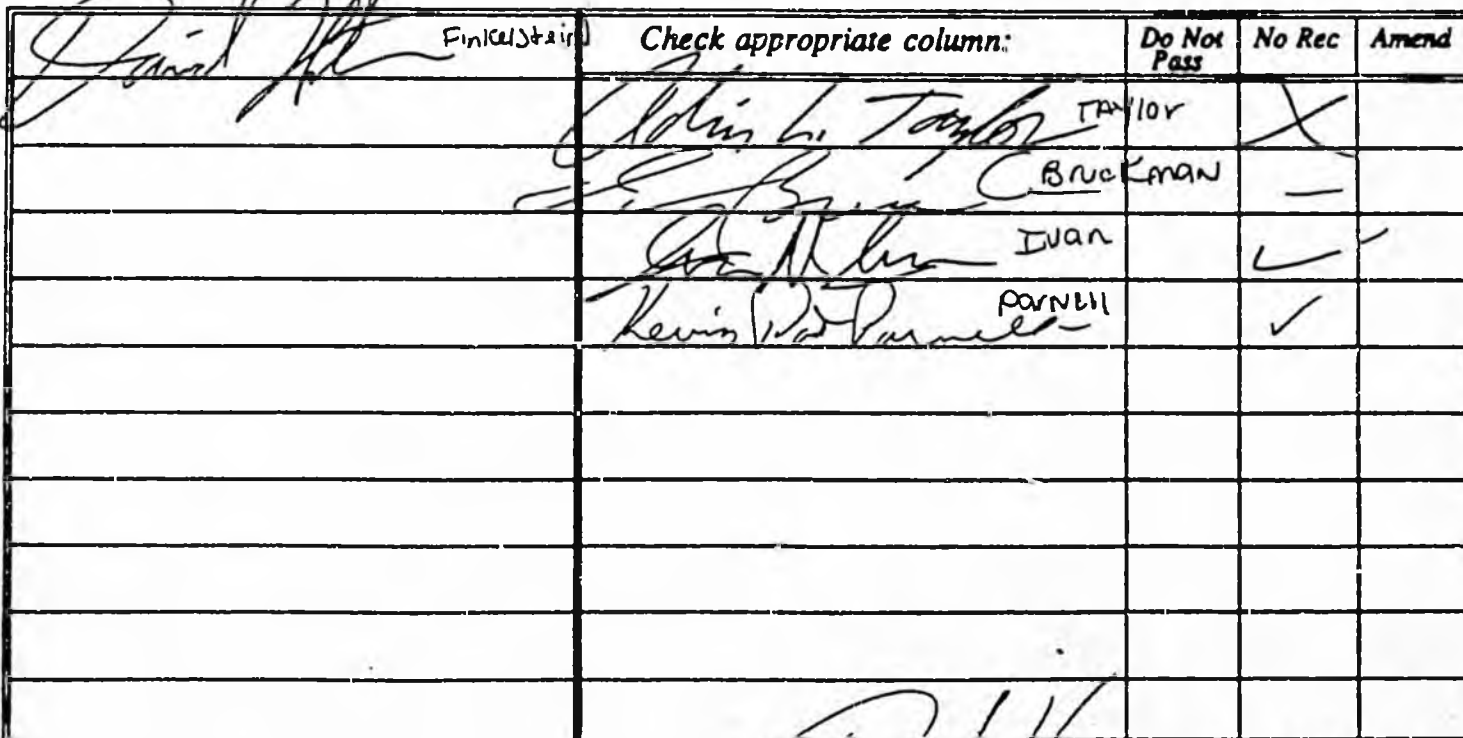 David Finkelstein
Check appropriate column: Do Not Pass No Rec Amend
Taylor TAYlOr X
BrucKmaN —
Ivan ✓
Kevin Parnell ParNEll ✓